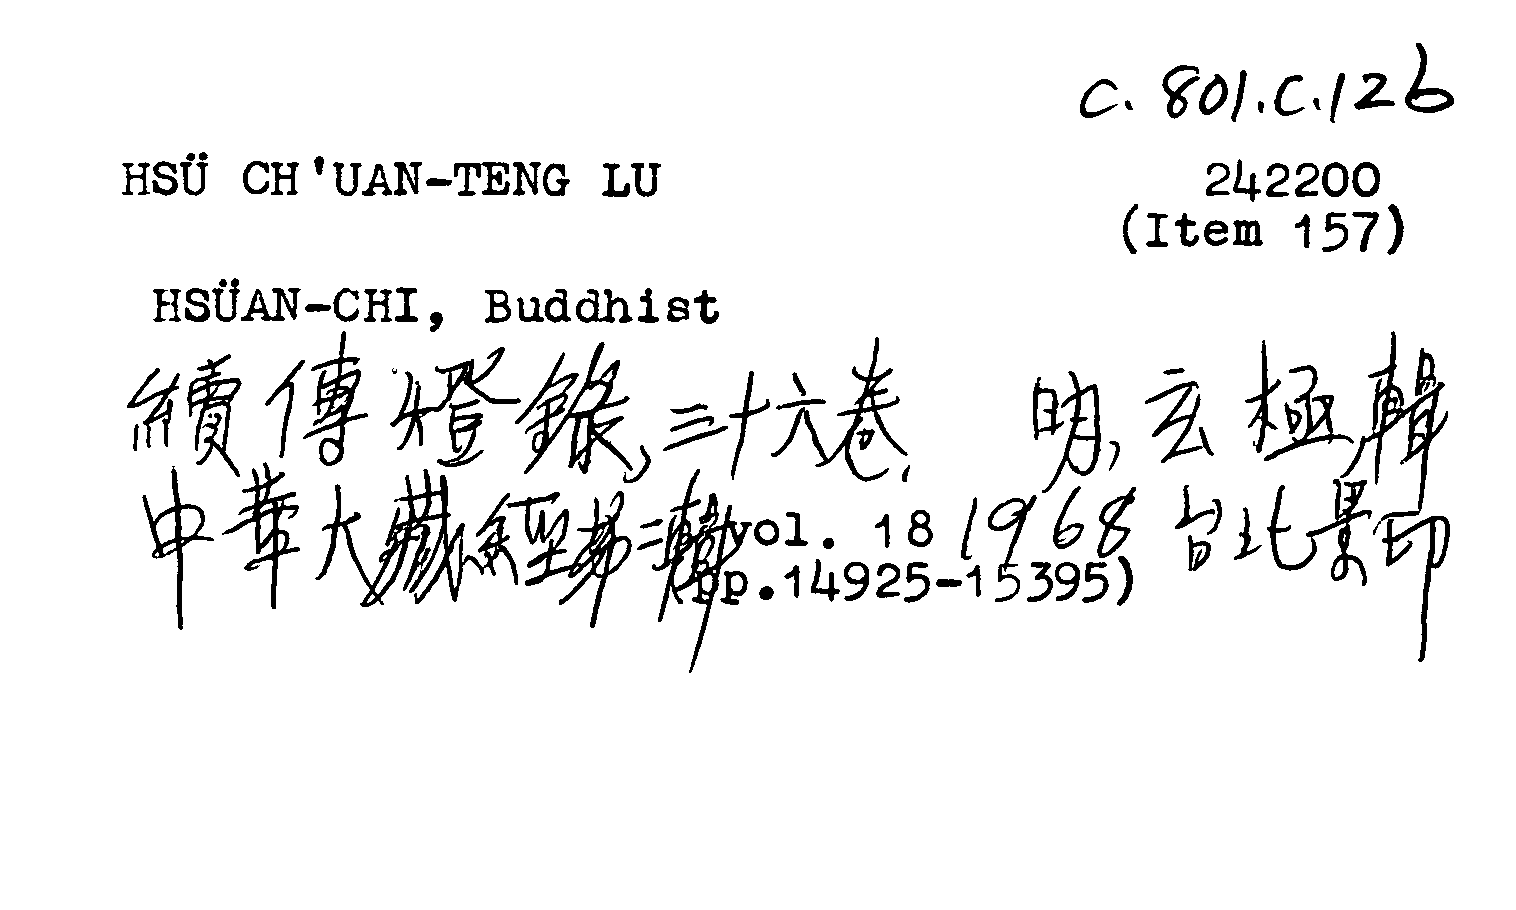 C. 801.C.126
HSÜ CH'UAN-TENG LU 242200
(Item 157)
HSÜAN-CHI, Buddhist
續傳燈錄, 三十六卷. 明, 玄極輯
中華大藏經第二輯 vol. 18 1968 台北景印
(pp.14925-15395)